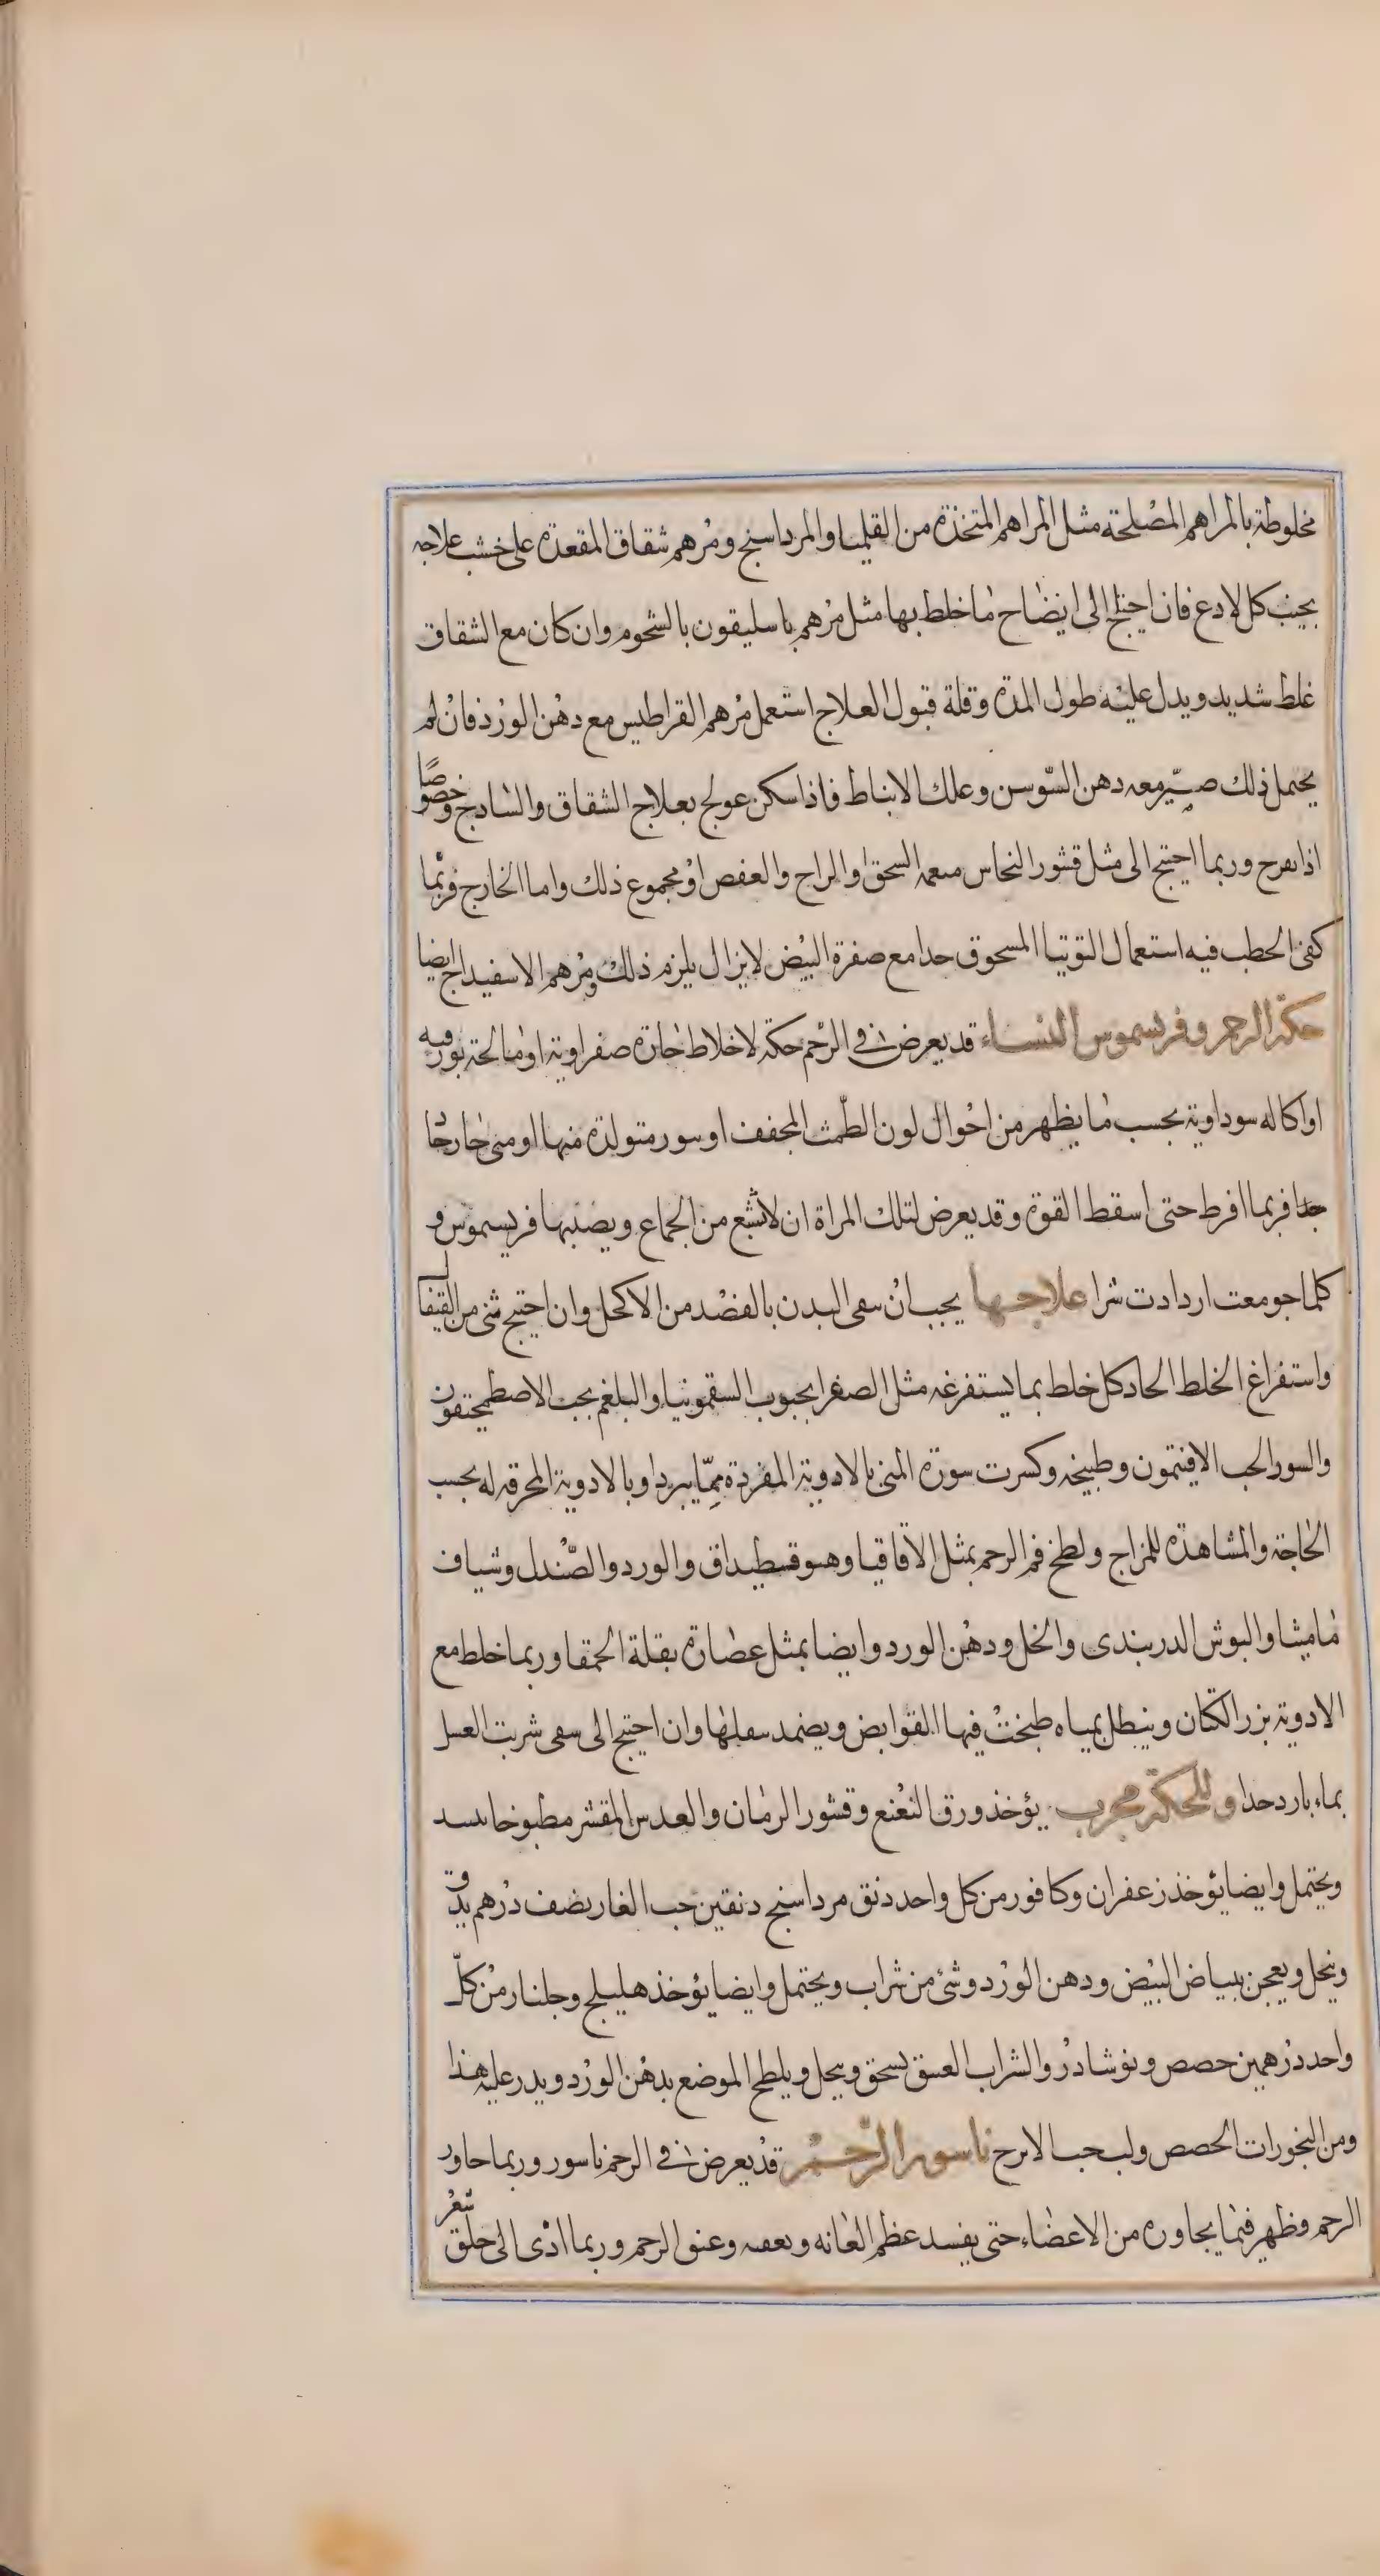 مخلوطة بالمراهم المصلحة مثل المراهم المتخذة من القليميا والمرداسنج ومرهم شقاق المقعدة على خشب علاجه
يجيب كل لادع فان احتيج الى انضاح ما خلط بها مثل مرهم باسليقون بالشحوم وان كان مع الشقاق
غلط شديد ويدل عليه طول المدة وقلة قبول العلاج استعمل مرهم القراطيس مع دهن الورد فان لم
يحتمل ذلك صير معه دهن السوسن وعلك الانباط فاذا سكن عولج بعلاج الشقاق والشادنج وخصوصًا
اذا تقرح وربما احتيج الى مثل قشور النحاس السحق او الزاج والعفص او مجموع ذلك واما الخارج فربما
كفى الخطب فيه استعمال التوتيا المسحوق جدا مع صفرة البيض لا يزال يلزم ذلك ومرهم الاسفيداج ايضا
حكة الرحم وفريسموس النساء قد يعرض في الرحم حكة لاخلاط حادة صفراوية او مالحة بورقيه
او اكاله سوداوية بحسب ما يظهر من احوال لون الطمث المجفف او بثور متولدة منها او منى حار حاد
جدا فربما افرط حتى اسقط القوة وقد يعرض لتلك المراة ان لا تشبع من الجماع ويصيبها فريسموس و
كلما جومعت ازدادت شرا علاجها يجب ان ينقى البدن بالفصد من الاكحل وان احتيج ثنى من القيفال
واستفراغ الخلط الحاد كل خلط بما يستفرغه مثل الصفرا بحبوب السقمونيا والبلغم بحب الاصطمخيقون
والسودا بحب الافتيمون وطبيخه وكسرت سورة المنى بالادوية المفردة مما يبرد او بالادوية المحرقه له بحسب
الحاجة والمشاهدة للمزاج ولطخ فم الرحم بمثل الاقاقيا وهيوقسطيداق والورد والصندل وشياف
ماميثا والبوش الدربندى والخل ودهن الورد وايضا بمثل عصارة بقلة الحمقا وربما خلط مع
الادوية بزر الكتان وينطل بمياه طبخت فيها القوابض ويضمد بثفلها وان احتيج الى سقى شربت العسل
بماء بارد جدا وللحكة مجرب يؤخذ ورق النعنع وقشور الرمان والعدس المقشر مطبوخا
ويحتمل وايضا يؤخذ زعفران وكافور من كل واحد دنق مرداسنج دنقين حب الغار نصف درهم يدق
وينخل ويعجن ببياض البيض ودهن الورد وشئ من شراب ويحتمل وايضا يؤخذ هليلج وجلنار من كل
واحد درهمين حصص ونوشادر والشراب العتيق يسحق وينخل ويلطخ الموضع بدهن الورد ويذر عليه هذا
ومن البخورات الحصص ولب حب الاترج ناسور الرحم قد يعرض في الرحم ناسور وربما جاوز
الرحم وظهر فيما يجاوره من الاعضاء حتى يفسد عظم العانه ويعفنه وعنق الرحم وربما ادى الى حلق شعر